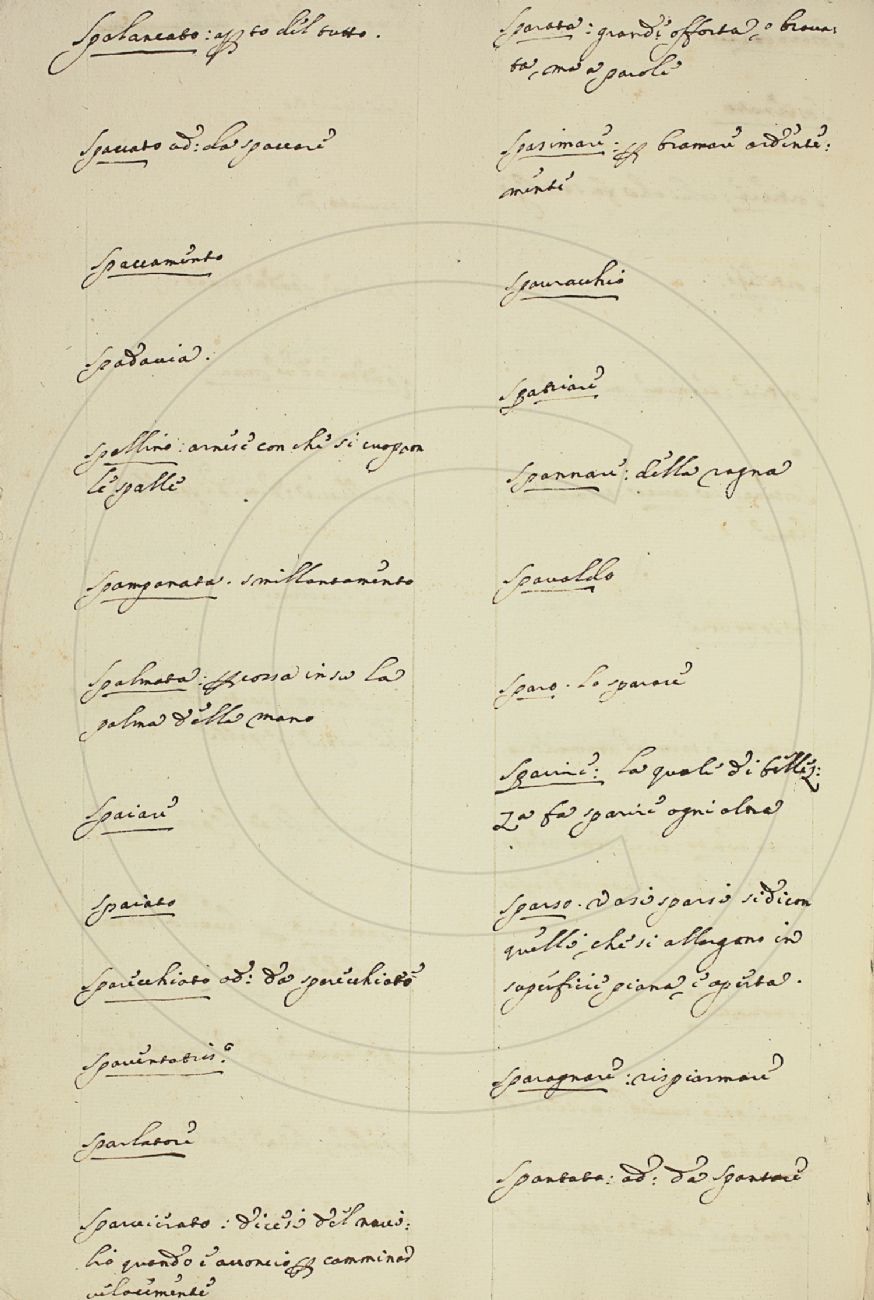 Spalancato: apto del tutto.
Spaccato ad: da spaccare
Spaccamento
Spadaccia.
Spallino: arnese con che si cuopron
le spalle
Spampanata. smillantamento
Spalmata: pcossa in su la
palma della mano
Spaiare
Spaiato
Sparecchiato ad: da sparecchiato
Spaventatrice
Sparlatore
Sparvierato: dicesi del navi:
lio quando è acconcio p camminar
velocemente
Sparata: grand'offerta, o brava:
ta, ma a parole
Spasimare: p bramare ardente:
mente
Spauracchio
Spatriare
Spannare: della ragna
Spavaldo
Sparo. lo sparare
Sparire: la quale di bellez:
za fa sparire ogni altra
Sparso. Vasi sparsi si dicon
quelli, che si allargono in
superficie piana, e aperta.
Sparagnare: risparmare
Spantato: ad: da Spantare